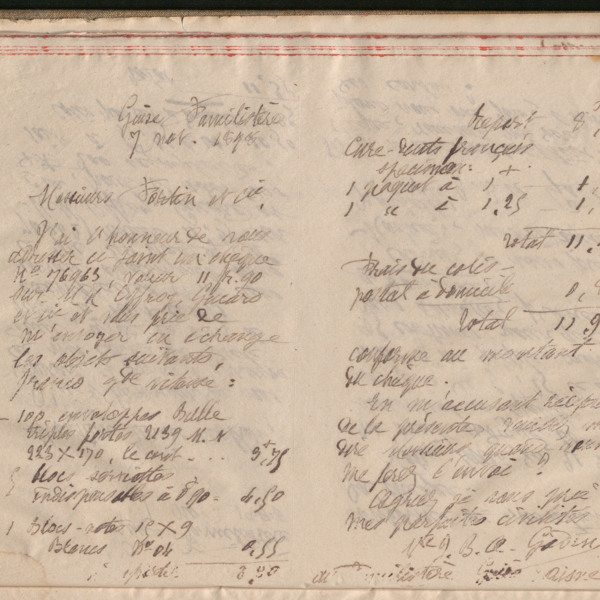 Guise Familistère
7 nov. 1898
Messieurs Fortin et Cie,
J'ai l'honneur de vous
adresser ci-joint un chèque
No 76963, valeur 11 f. 90
sur M.
et Cie et vous prie de
m'envoyer en échange
les objets suivants,
franco gde vitesse :
100 enveloppes Bulle
triples fortes 2139
223 x 170, le cent... 3f,75
5 blocs sténottes
indispensables à 0,90 - 4,50
1 blocs-notes 15 x 9
Blancs No 04 0,55
à reporter 8,80
Report 8
Cure-dents français
spécimen :
1 paquet à 1 f
1 " à 1,25 1,
Total 11,
Frais du colis
postal à domicile 0,
Total 11,9
conforme au montant
du chèque.
En m'accusant réception
de la présente, veuillez me
dire Messieurs, quand vous
me ferez l'envoi ?
Agréez je vous prie
mes parfaites civilités
Vve J. B. A. Godin
au Familistère Guise Aisne